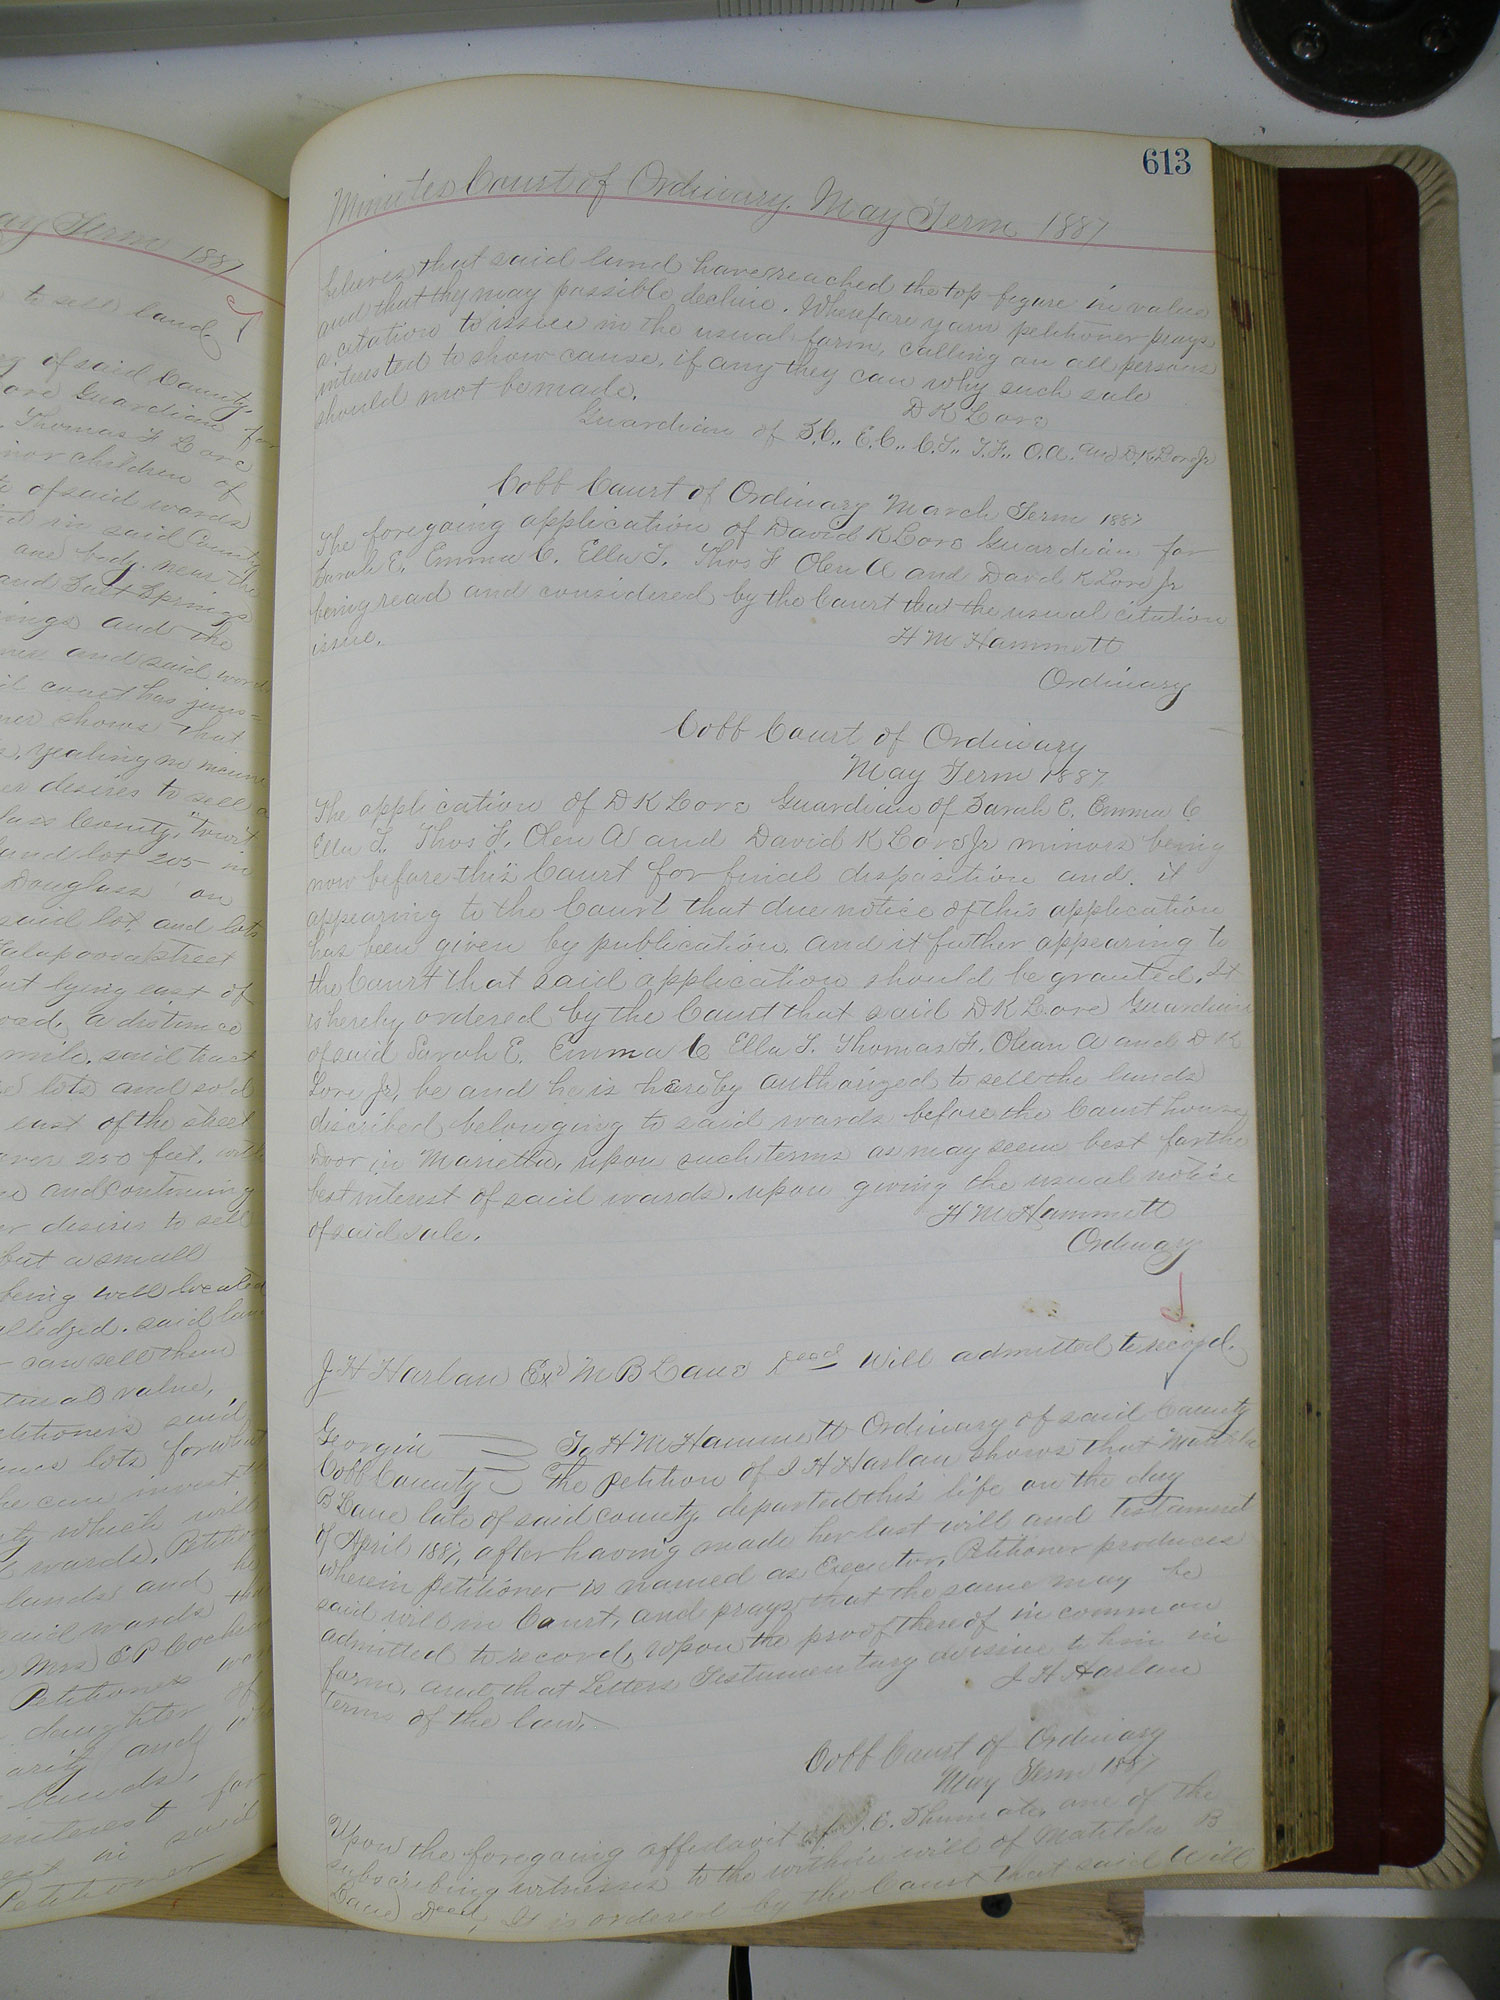 ay Term 1887
to sell land
of said County.
Guardian for
Thomas F Love
minor children of
of said wards
in said County
one body near the
and Salt Springs
and the
and said wards
court has juris-
shows that
desires to sell
County, towit
land lot 205 in
Douglass on
said lot, and lots
street
lying east of
road, a distance
mile. said tract
lots and sold
east of the street
over 250 feet, with
and continuing
desires to sell
but a small
being well located
alledged. said land
can sell them
actual value,
Petitioners said
lots for what
he can invest
which will
wards, Petition
lands and he
said wards
Mrs E P
Petitioner
daughter of
and
lands,
interest for
in said
Petitioner
613
Minutes Court of Ordinary, May Term 1887
believes that said land have reached the top figure in value
and that thy may possible decline. Wherefore your petitioner prays
a citation to issue in the usual form, calling on all persons
intrested to show cause, if any they can why such sale
should not be made.
D K Love
Guardian of S.E., E.C., E.T., T.F., O.A. and D.K. Love Jr
Cobb Court of Ordinary March Term 1887
The foregoing application of David K Love Guardian for
Sarah E. Emma C. Ella T. Thos F Olen A and David K Love Jr
being read and considered by the Court that the usual citation
issue.
H M Hammett
Ordinary
Cobb Court of Ordinary
May Term 1887.
The application of D K Love Guardian of Sarah E. Emma C
Ella T. Thos F. Olen A and David K Love Jr minors being
now before this Court for final disposition and. it
appearing to the Court that due notice of this application
has been given by publication. and it futher appearing to
the Court that said application should be granted. It
is hereby ordered by the Court that said D K Love Guardian
of said Sarah E. Emma C Ella T. Thomas F. Olean A and D K
Love Jr, be and he is hereby authorized to sell the lands
discribed belonging to said wards before the Court house
Door in Marietta, upon such terms as may seem best for the
best interest of said wards. upon giving the usual notice
of said sale.
H M Hammett
Ordinary
J H Harlan Exr M B Lane Decd Will admitted to record.
Georgia To H M Hammett Ordinary of said County
Cobb County The petition of J H Harlan shows that Matilda
B Lane late of said county departed this life on the day
of April 1887, after having made her last will and testament
wherein petitioner is named as Executor, Petitioner produces
said will in Court, and prays that the same may be
admitted to record, upon the proof thereof in common
form, and that Letters Testamentary do issue to him in
terms of the law.
J H Harlan
Cobb Court of Ordinary
May Term 1887
Upon the foregoing affidavit of J. E. Shumate, one of the
subscribing witnesses to the within will of Matilda B
Lane Decd, It is ordered by the Court that said Will